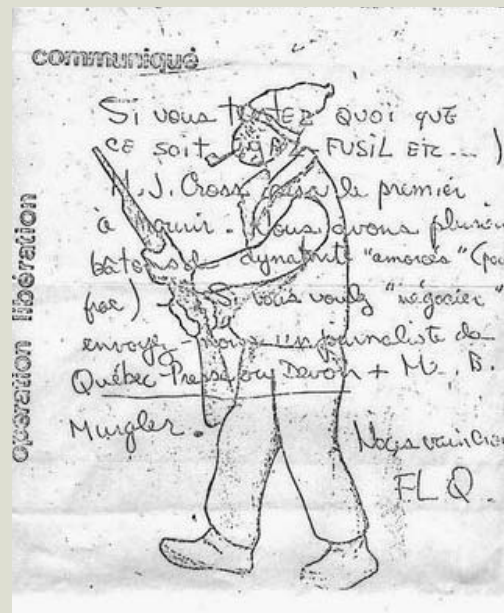 communiqué
Si vous tentez quoi que
ce soit (gaz, fusil etc...)
M. J. Cross sera le premier
à mourir. Nous avons plusieurs
bâtons de dynamite "amorcés" (pas
frac) Si vous voulez "négocier"
envoyez-nous un journaliste de
Québec-Presse ou Devoir + Me. B.
Mungler.
Nous vaincrons
FLQ.
opération libération